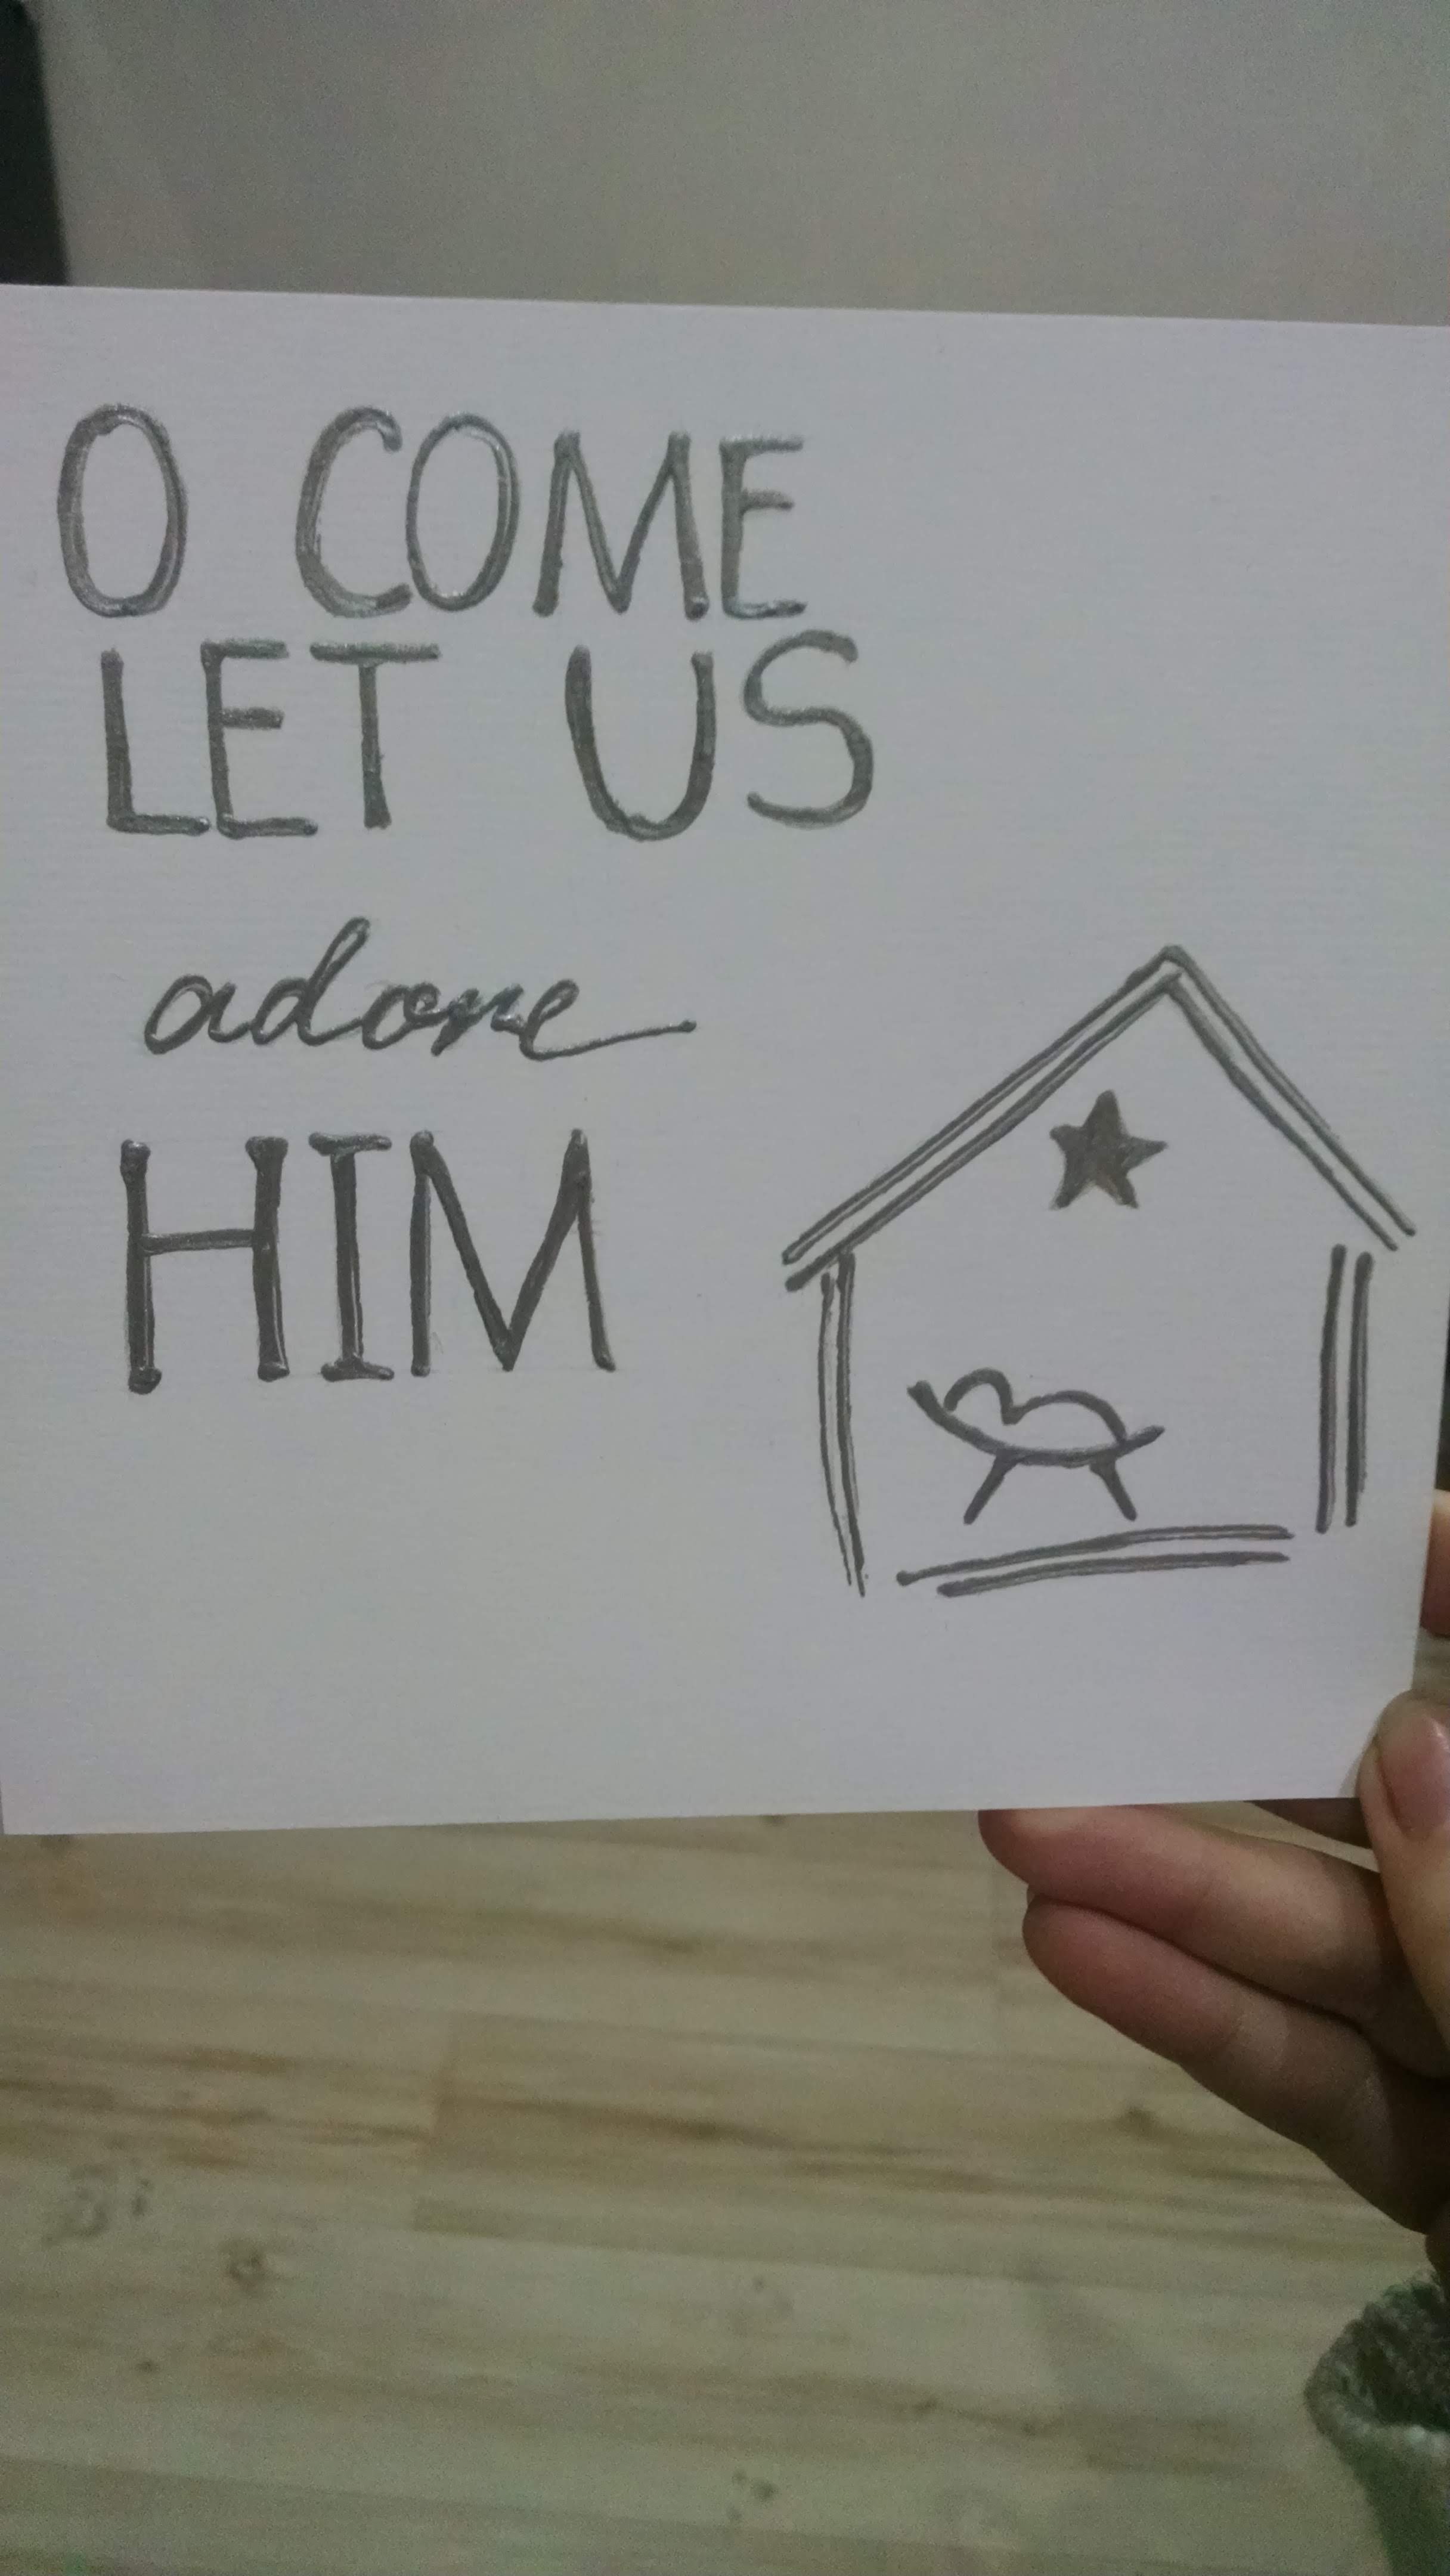 O COME
LET US
adore
HIM